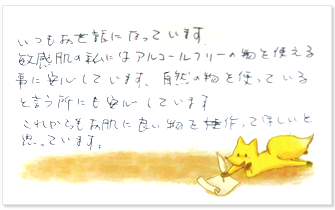 いつもお世話になっています。
敏感肌の私にはアルコールフリーの物を使える
事に安心しています。自然の物を使っている
と言う所にも安心しています
これからもお肌に良い物を作ってほしいと
思っています。